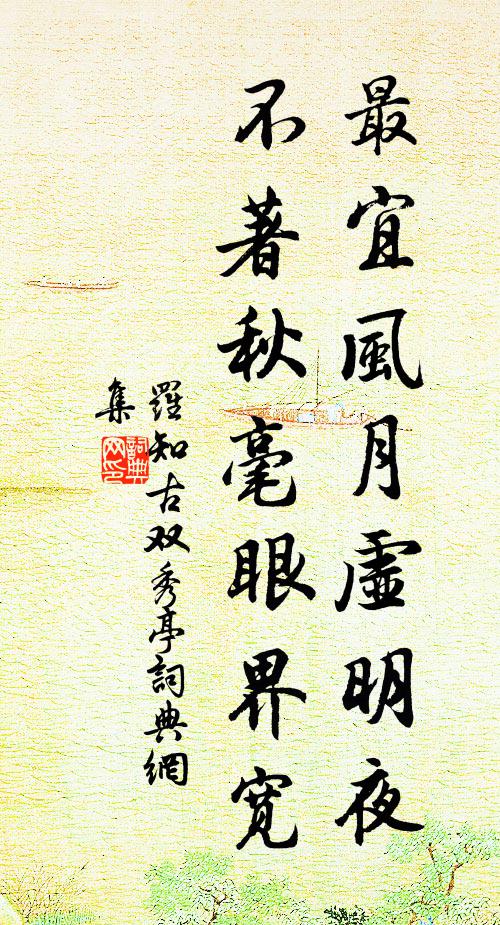 最宜風月虛明夜
不著秋毫眼界寬
羅知古双秀亭詞典網
集
詞典網印